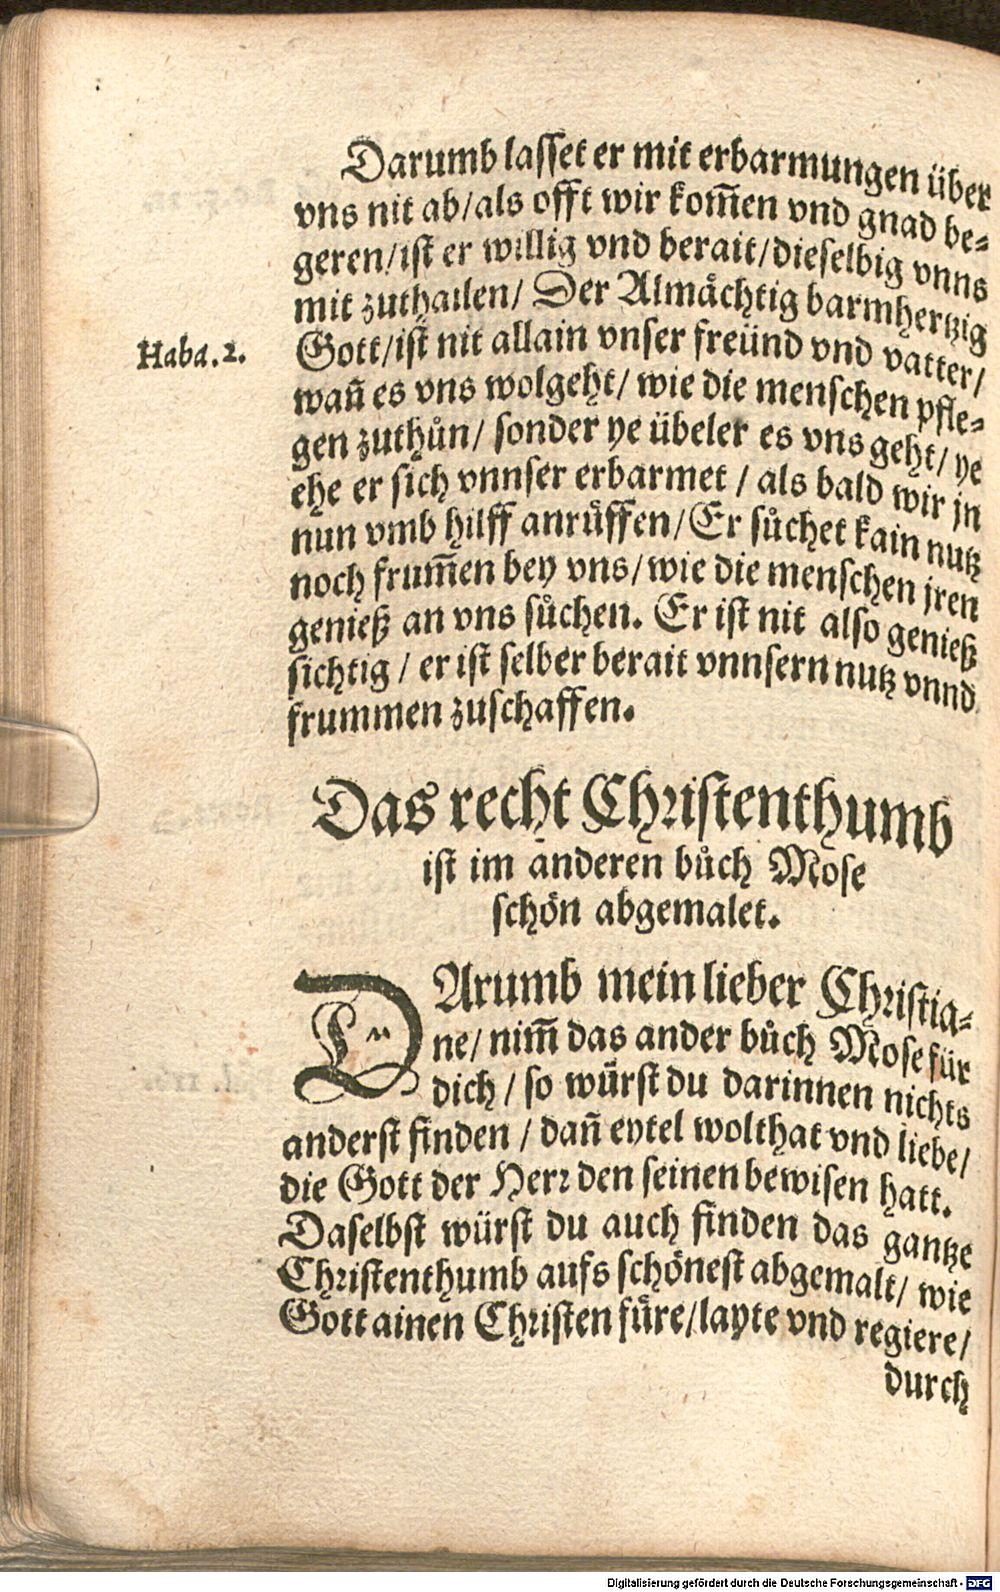 Darumb lasset er mit erbarmungen über
vns nit ab/als offt wir kom̃en vnd gnad be-
geren/ist er willig vnd berait/dieselbig vnns
mit zuthailen/ Der Almächtig barmhertzig
Haba.2.
Gott/ist nit allain vnser freünd vnd vatter/
wañ es vns wolgeht/ wie die menschen pfle-
gen zuthůn/ sonder ye übeler es vns geht/ ye
ehe er sich vnnser erbarmet / als bald wir jn
nun vmb hilff anrůffen/Er sůchet kain nutz
noch frum̃en bey vns/wie die menschen jren
genieß an vns sůchen. Er ist nit also genieß
sichtig / er ist selber berait vnnsern nutz vnnd
frummen zuschaffen.
Das recht Christenthumb
ist im anderen bůch Mose
schön abgemalet.
DArumb mein lieber Christia-
ne/ nim̃ das ander bůch Mose für
dich / so würst du darinnen nichts
anderst finden / dañ eytel wolthat vnd liebe/
die Gott der Herr den seinen bewisen hatt.
Daselbst würst du auch finden das gantze
Christenthumb aufs schönest abgemalt/ wie
Gott ainen Christen füre/layte vnd regiere/
durch
Digitalisierung gefördert durch die Deutsche Forschungsgemeinschaft - DFG